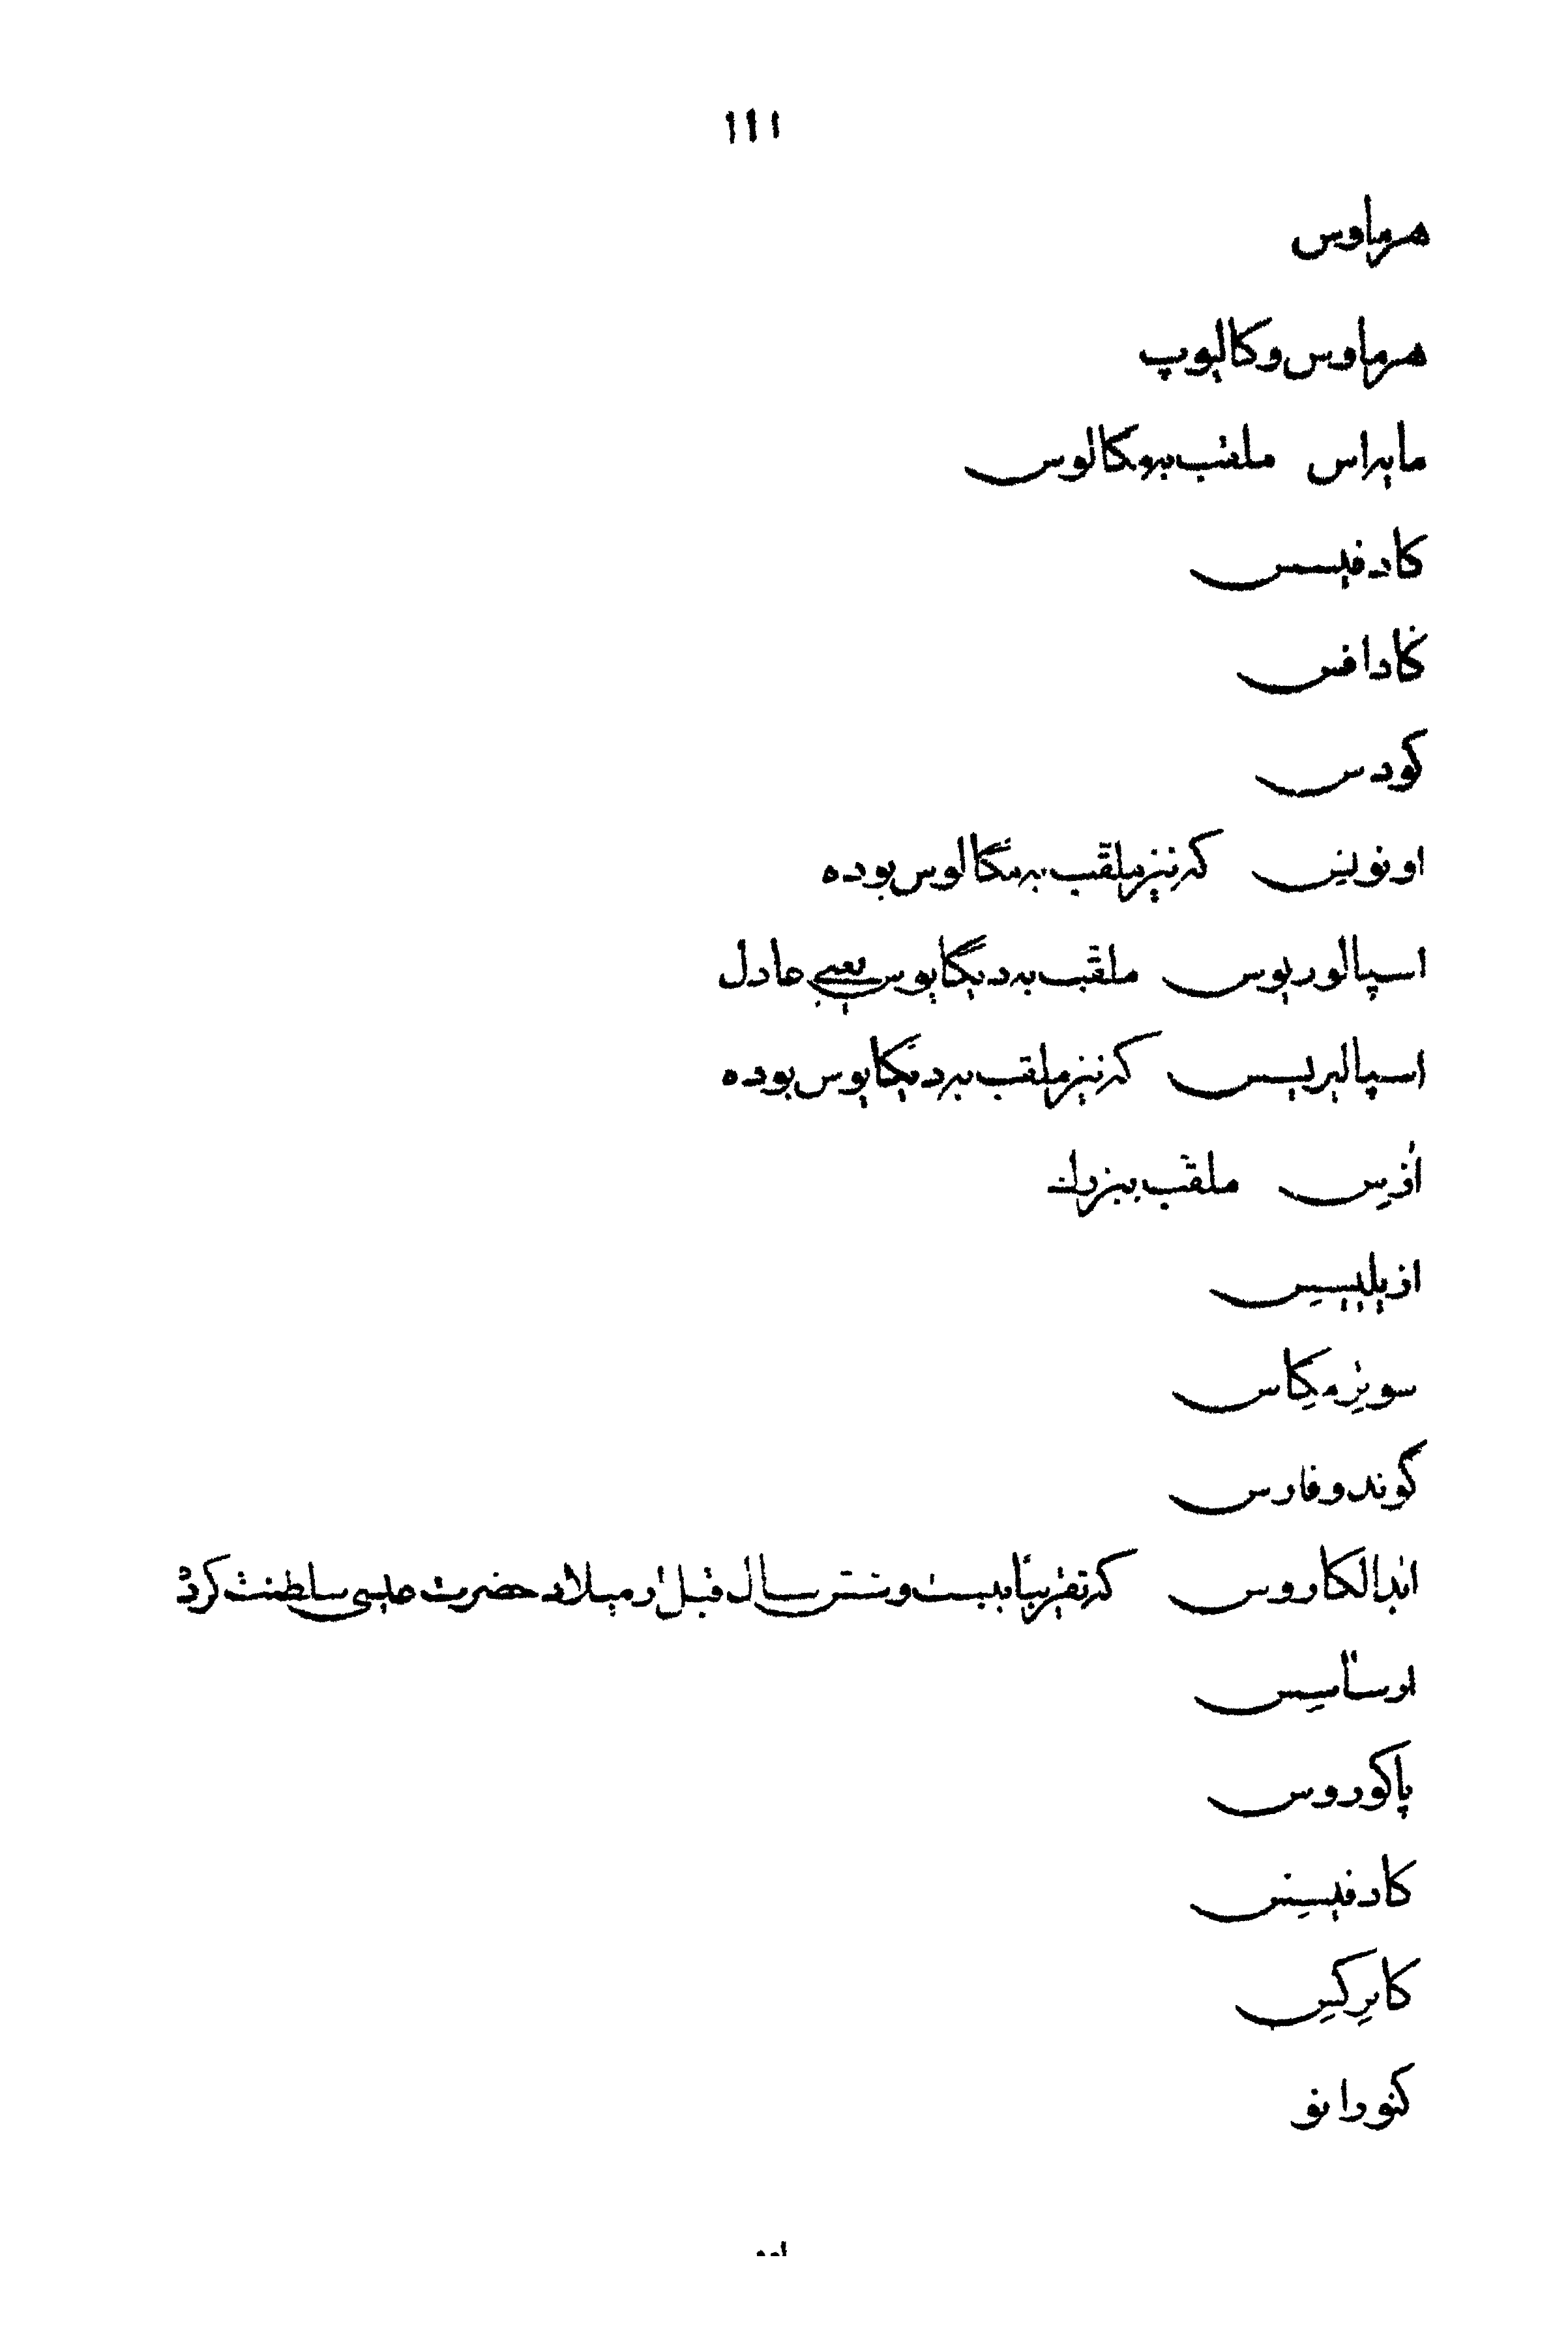 ۱۱۱
هرماوس
هرماوس و کالیوپ
مایراس ملقب به مکالوس
کادفیس
کادافس
کودس
اونونیس که نیز ملقب به مگالوس بوده
اسپالوریوس ملقب به دیکایوس یعنی عادل
اسپالیریس که نیز ملقب به دیکایوس بوده
ازس ملقب ببزرك
ازیلیسس
سویزمکاس
گوندوفارس
ابدالکاروس که تقریباً بیست و شش سال قبل از میلاد حضرت عیسی سلطنت کرد
ارساسس
پاکوروس
کادفیسس
کانرکس
کنورانو